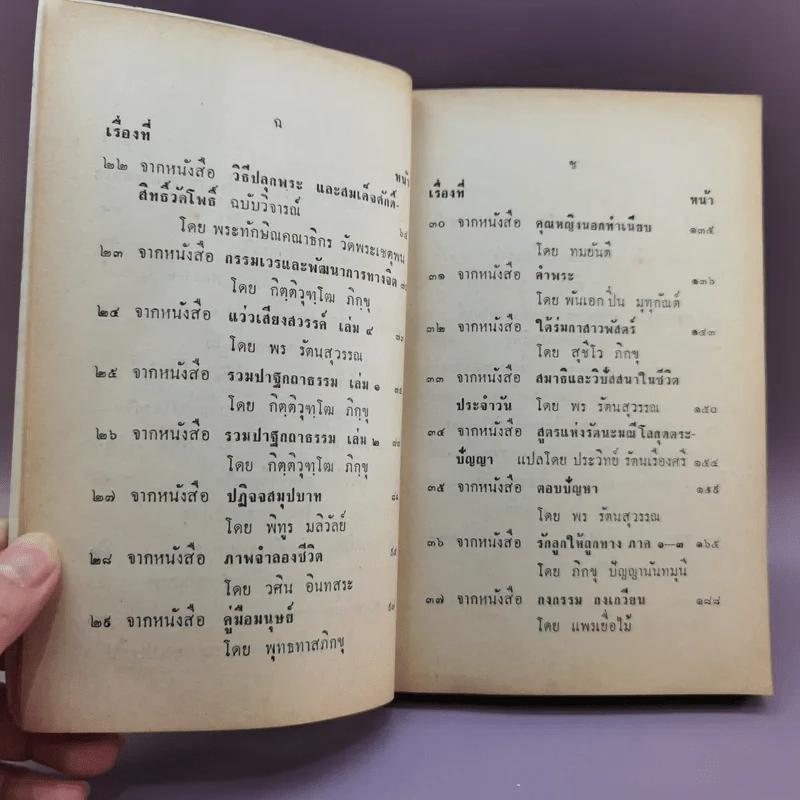 ฉ
เรื่องที่
หน้า
๒๒ จากหนังสือ วิธีปลุกพระ และสมเด็จศักดิ์-
สิทธิ์วัดโพธิ์ ฉบับวิจารณ์
โดย พระทักษิณคณาธิกร วัดพระเชตุพน
๒๓ จากหนังสือ กรรมเวรและพัฒนาการทางจิต
โดย กิตฺติวุฑฺโฒ ภิกฺขุ
๒๔ จากหนังสือ แว่วเสียงสวรรค์ เล่ม ๔
โดย พร รัตนสุวรรณ
๒๕ จากหนังสือ รวมปาฐกถาธรรม เล่ม ๑
โดย กิตฺติวุฑฺโฒ ภิกฺขุ
๒๖ จากหนังสือ รวมปาฐกถาธรรม เล่ม ๒
โดย กิตฺติวุฑฺโฒ ภิกฺขุ
๒๗ จากหนังสือ ปฏิจจสมุปบาท
โดย พิทูร มลิวัลย์
๒๘ จากหนังสือ ภาพจำลองชีวิต
โดย วศิน อินทสระ
๒๙ จากหนังสือ คู่มือมนุษย์
โดย พุทธทาสภิกขุ
ช
เรื่องที่ หน้า
๓๐ จากหนังสือ คุณหญิงนอกทำเนียบ ๑๓๕
โดย ทมยันตี
๓๑ จากหนังสือ คำพระ ๑๓๖
โดย พันเอก ปิ่น มุทุกันต์
๓๒ จากหนังสือ ใต้ร่มกาสาวพัสตร์ ๑๔๓
โดย สุชีโว ภิกขุ
๓๓ จากหนังสือ สมาธิและวิปัสสนาในชีวิต
ประจำวัน โดย พร รัตนสุวรรณ ๑๕๐
๓๔ จากหนังสือ สูตรแห่งรัตนะมณีโลกุตตระ-
ปัญญา แปลโดย ประวิทย์ รัตนเรืองศรี ๑๕๔
๓๕ จากหนังสือ ตอบปัญหา ๑๕๙
โดย พร รัตนสุวรรณ
๓๖ จากหนังสือ รักลูกให้ถูกทาง ภาค ๑-๓ ๑๖๕
โดย ภิกขุ ปัญญานันทมุนี
๓๗ จากหนังสือ กงกรรม กงเกวียน ๑๘๘
โดย แพรเยื่อไม้